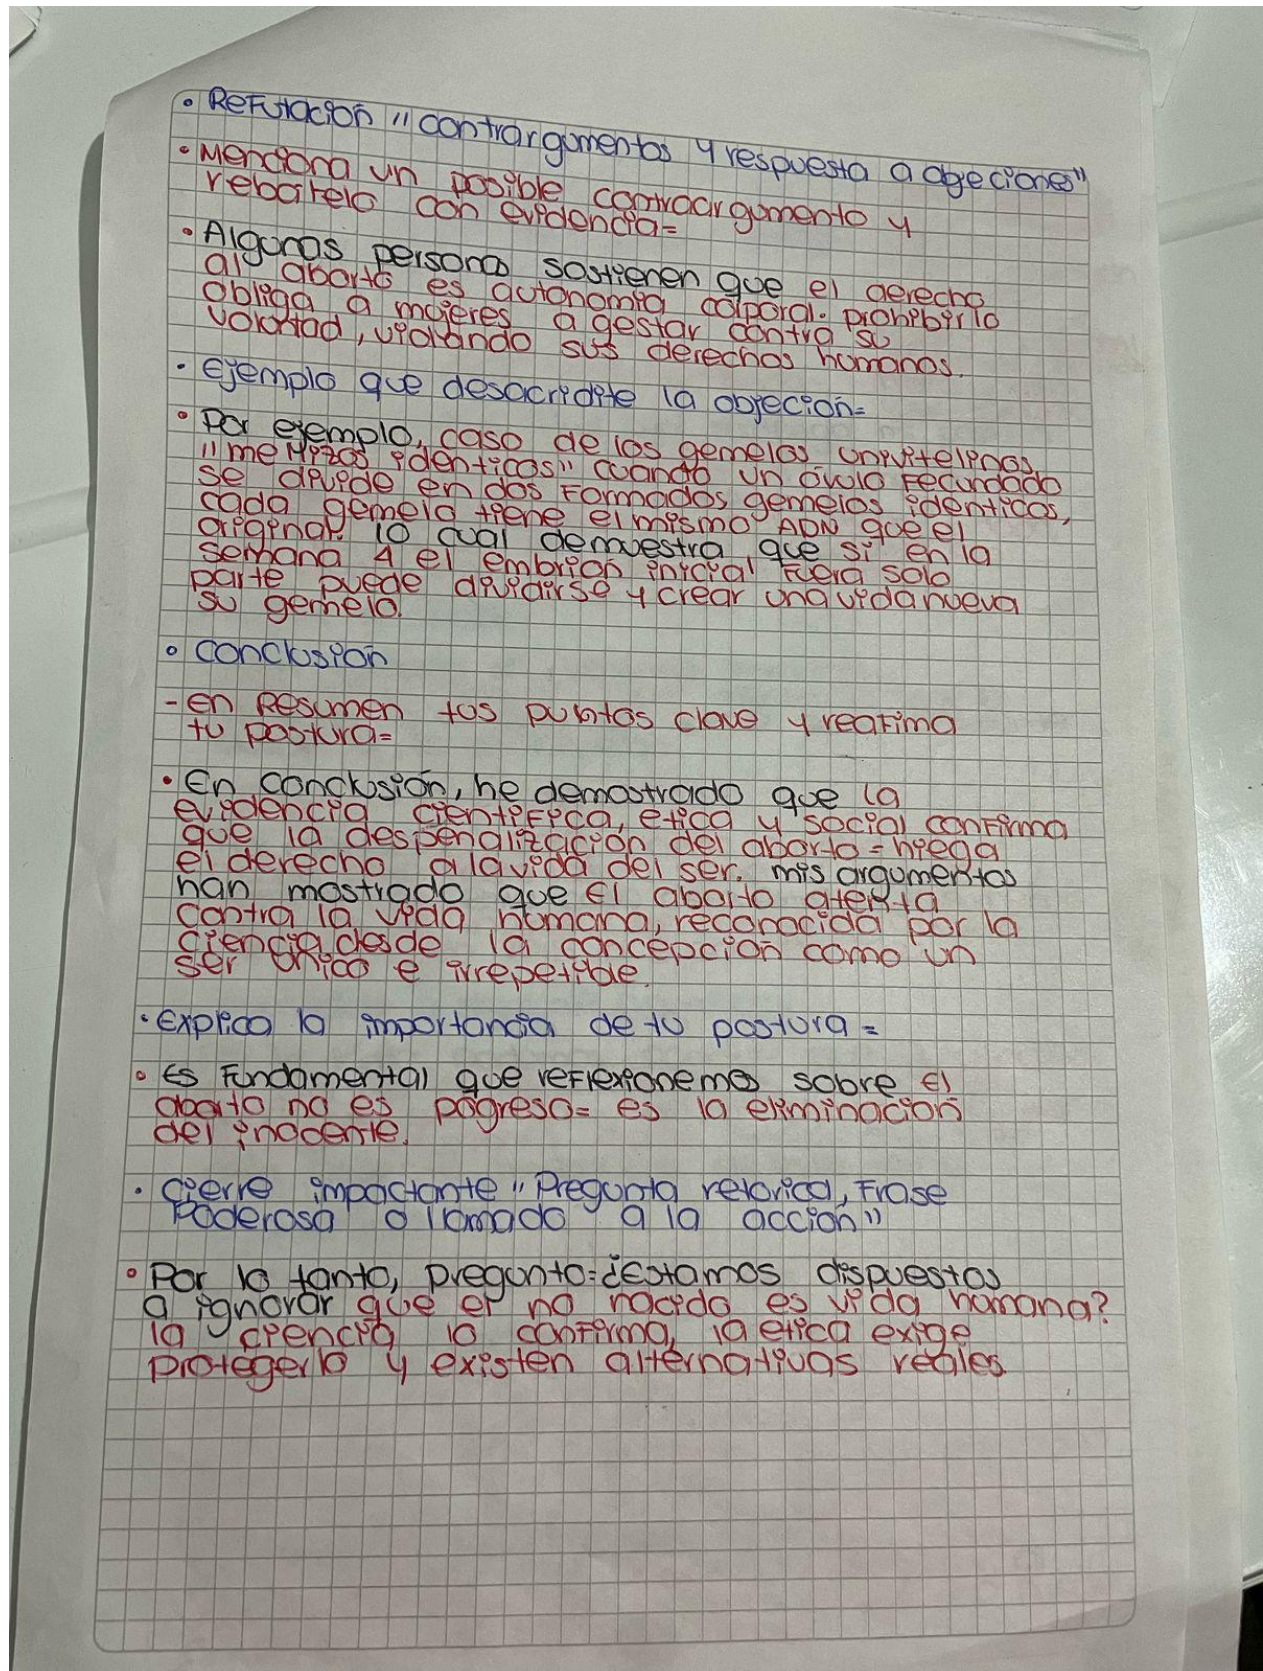 • Refutación "contrargumentos y respuesta a objeciones"
• Menciona un posible contraargumento y
rebatelo con evidencia=
• Algunas personas sostienen que el derecho
al aborto es autonomia corporal. prohibirlo
obliga a mujeres a gestar contra su
voluntad, violando sus derechos humanos.
• Ejemplo que desacridite la objeción=
• Por ejemplo, caso de los gemelos univitelinos
"mellizos identicos" cuando un óvulo fecundado
se divide en dos Formados gemelos identicos,
cada gemelo tiene el mismo ADN que el
original. lo cual demuestra que si en la
semana 4 el embrion inicial Fuera solo
parte puede dividirse y crear una vida nueva
su gemelo.
• Conclusión
- en Resumen tos puntos clave y reafima
tu postura=
• En conclusión, he demostrado que la
evidencia cientifica, etica y social confirma
que la despenalización del aborto = niega
el derecho a la vida del ser. mis argumentos
han mostrado que El aborto atenta
contra la vida humana, reconocida por la
ciencia desde la concepción como un
ser único e irrepetible.
• Explica la importancia de tu postura=
• Es Fundamental que reflexionemos sobre El
aborto no es pogreso= es la eliminación
del inocente.
• Cierre impactante "Pregunta retorica, Frase
Poderosa o llamado a la acción"
• Por lo tanto, pregunto: ¿Estamos dispuestos
a ignorar que el no nacido es vida humana?
la ciencia lo confirma, la etica exige
protegerlo y existen alternativas reales.